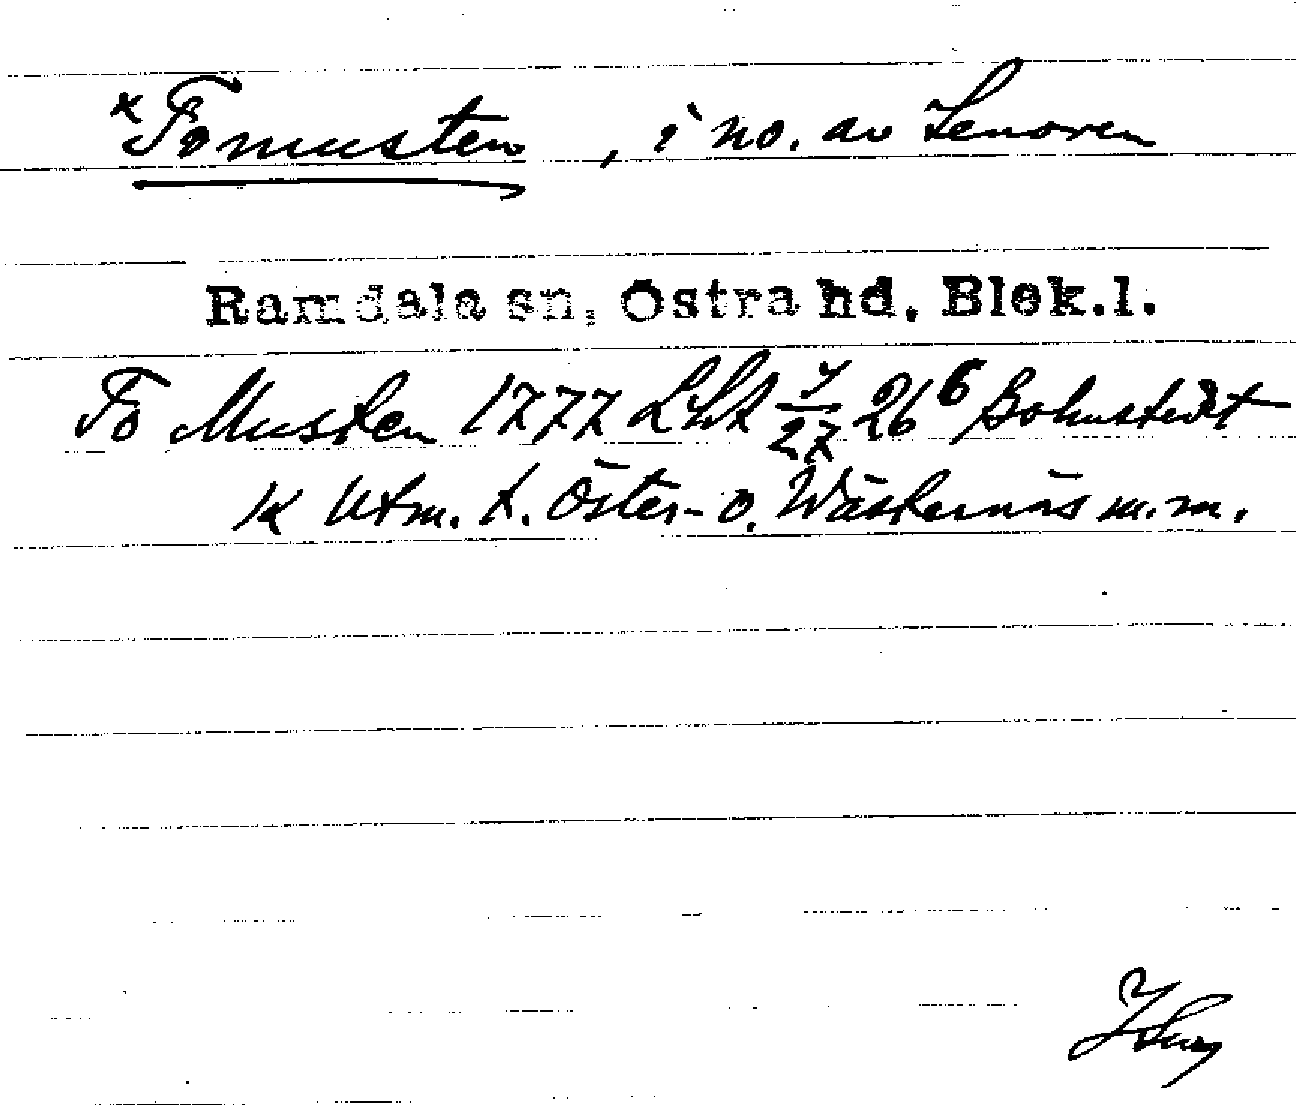 x Fomusten, i no. av Senoren
Ramdala sn, Östra hd. Blek.l.
Fo Musten 1777 LSA 26⁶ Bohnstedt
K Utm. t. Öster- o. Wästernäs m.m.